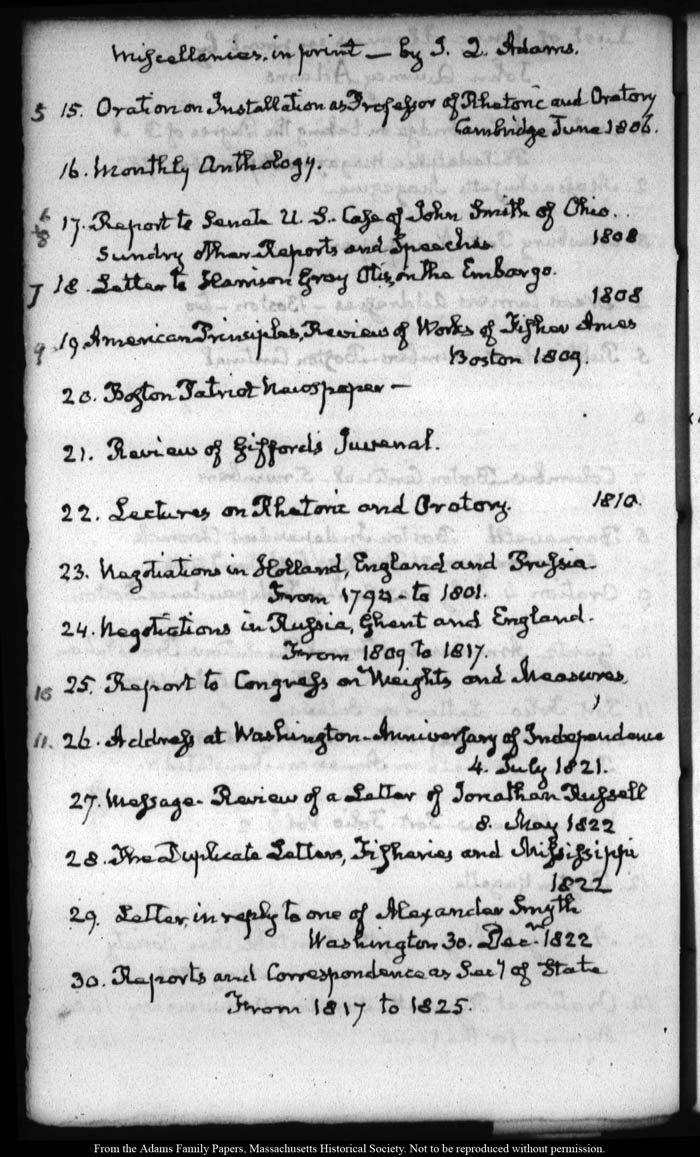 Miscellanies. in print — by J. Q. Adams.
5 15. Oration on Installation as Professor of Rhetoric and Oratory
Cambridge June 1806.
16. Monthly Anthology.
6
8 17. Report to Senate U. S. Case of John Smith of Ohio.
Sundry other Reports and Speeches 1808
7 18. Letter to Harrison Gray Otis, on the Embargo.
1808
9 19. American Principles, Review of Works of Fisher Ames
Boston 1809.
20. Boston Patriot Newspaper —
21. Review of Gifford's Juvenal.
22. Lectures on Rhetoric and Oratory. 1810.
23. Negotiations in Holland, England and Prussia.
From 1794 to 1801.
24. Negotiations in Russia, Ghent and England.
From 1809 to 1817.
10 25. Report to Congress on Weights and Measures,
11. 26. Address at Washington Anniversary of Independence
4. July 1821.
27. Message. Review of a Letter of Jonathan Russell
8. May 1822
28. The Duplicate Letters, Fisheries and Mississippi
1822
29. Letter, in reply to one of Alexander Smyth
Washington 30. Decr. 1822
30. Reports and Correspondence as Secy of State
From 1817 to 1825.
From the Adams Family Papers, Massachusetts Historical Society. Not to be reproduced without permission.